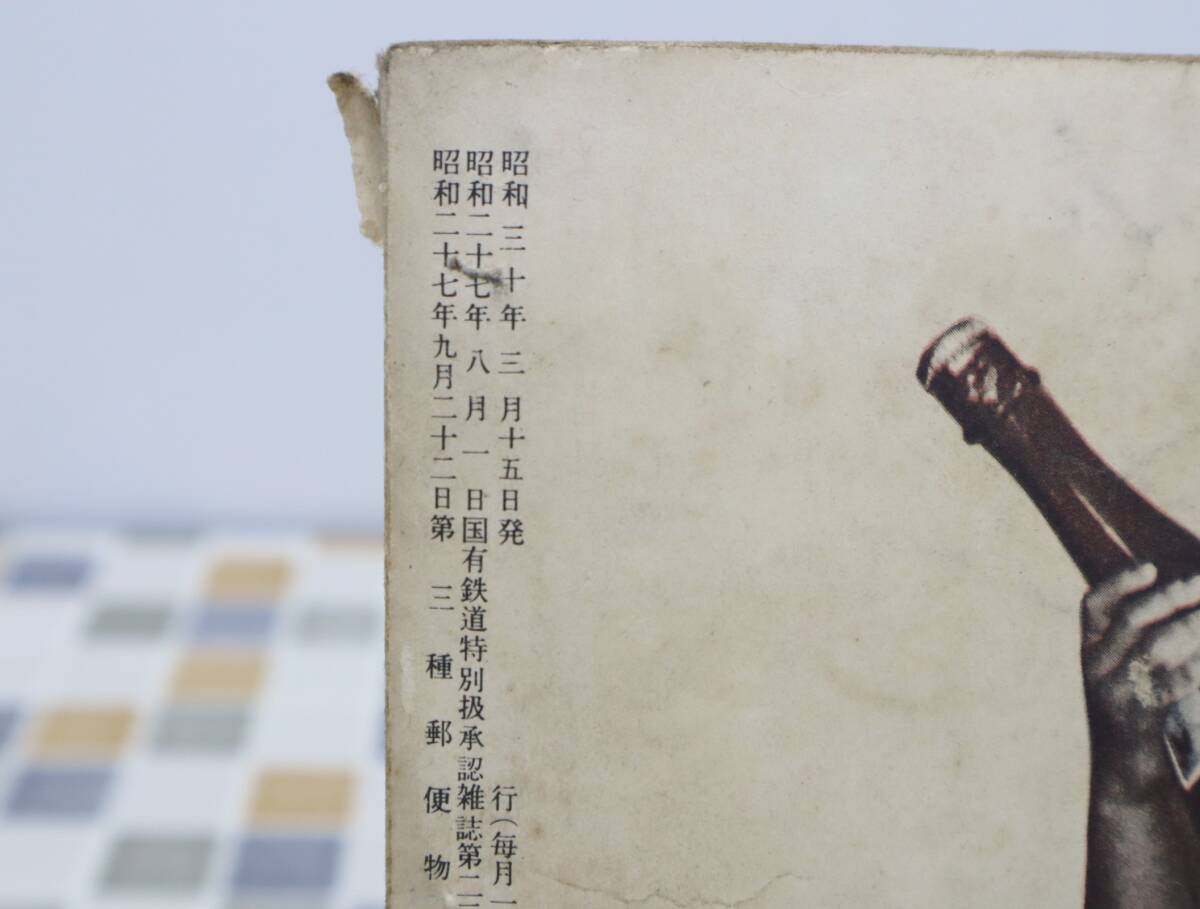 昭和三十年三月十五日発行(毎月一
昭和二十七年八月一日国有鉄道特別扱承認雑誌第二
昭和二十七年九月二十二日第三種郵便物